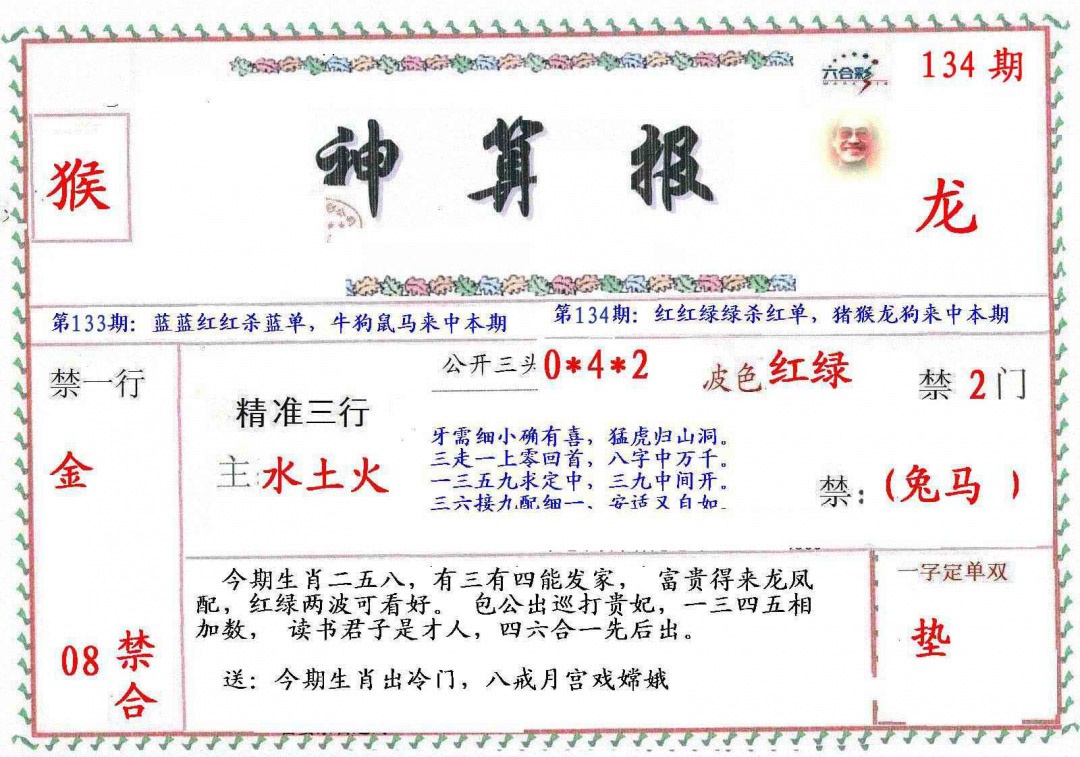 六合彩
134 期
猴
神算报
龙
第133期：蓝蓝红红杀蓝单，牛狗鼠马来中本期
第134期：红红绿绿杀红单，猪猴龙狗来中本期
禁一行
金
08 禁合
精准三行
主:水土火
公开三头 0*4*2
波色 红绿
牙需细小确有喜，猛虎归山洞。
三走一上零回首，八字中万千。
一三五九求定中，三九中间开。
三六接九配细一、安适又自如。
禁 2 门
禁：(兔马 )
今期生肖二五八，有三有四能发家， 富贵得来龙凤
配，红绿两波可看好。 包公出巡打贵妃，一三四五相
加数， 读书君子是才人，四六合一先后出。
送：今期生肖出冷门，八戒月宫戏嫦娥
一字定单双
垫